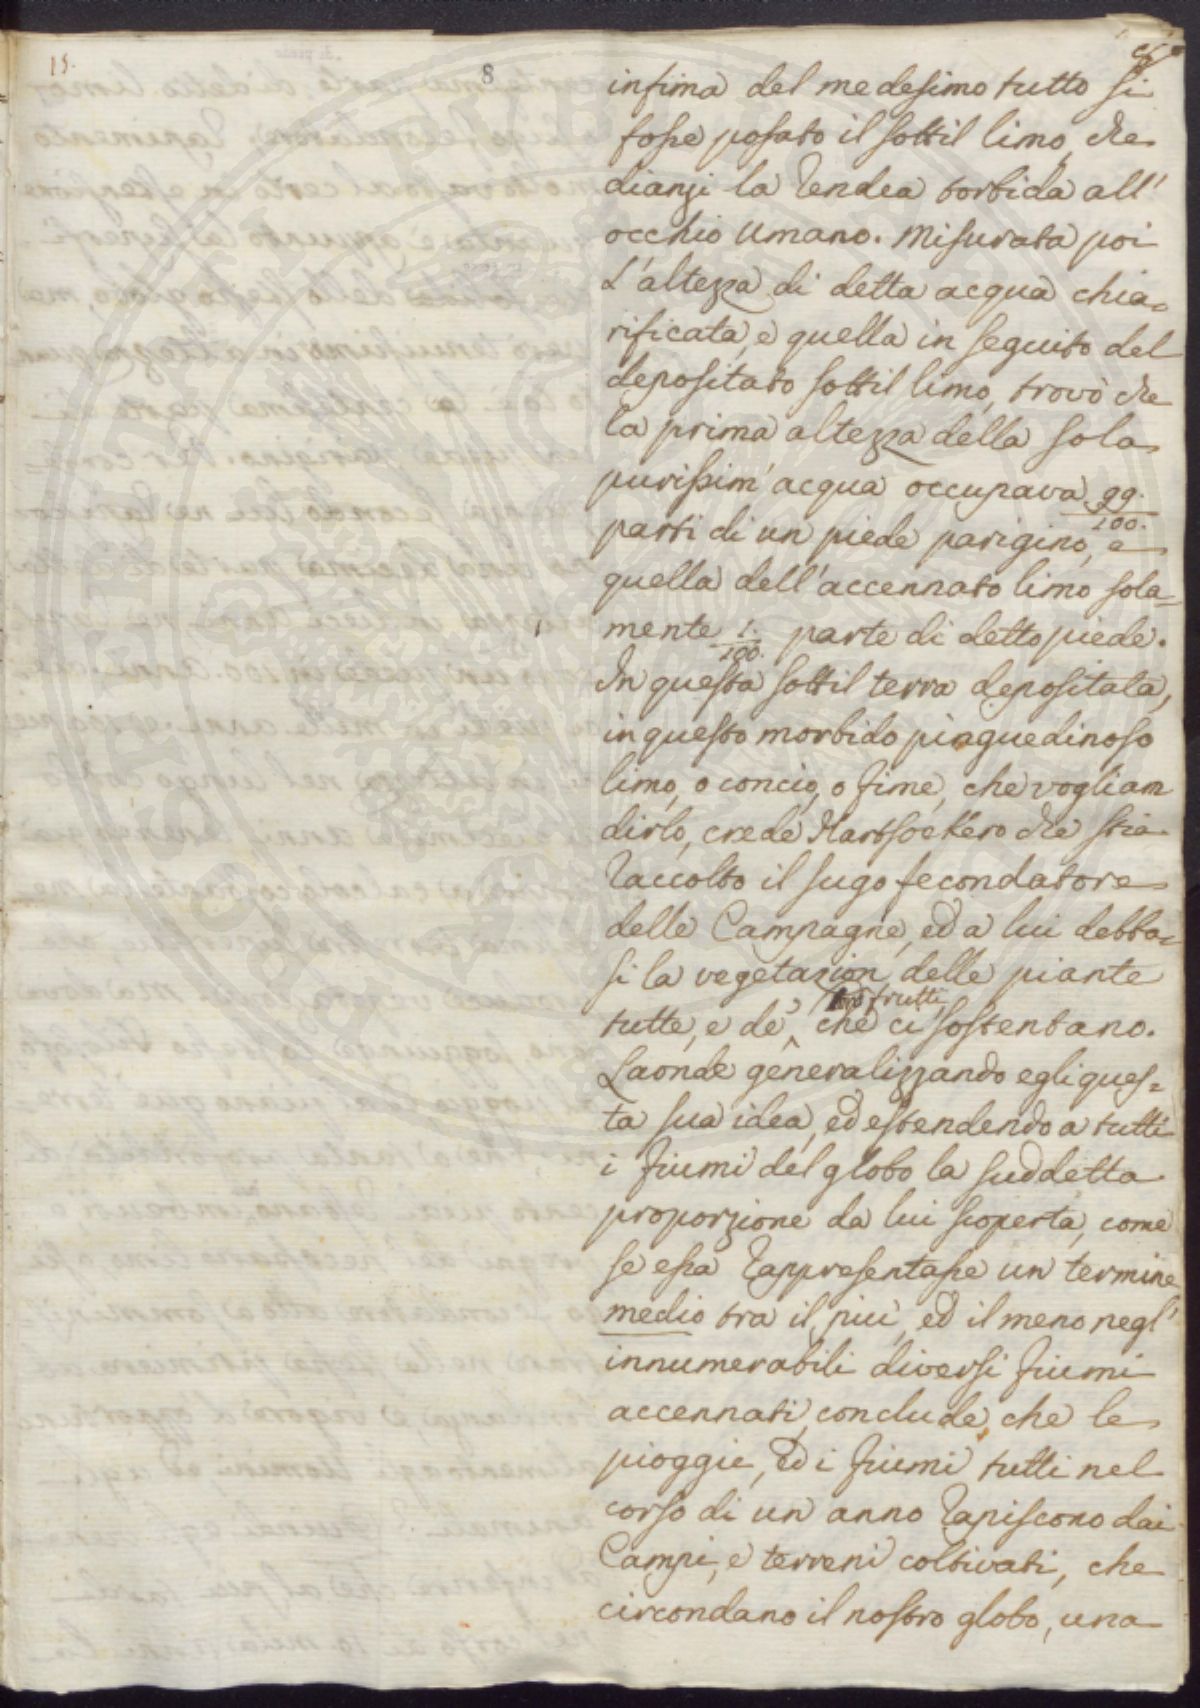 15.
8
infima del medesimo tutto si
fosse posato il sottil limo, che
dianzi la rendea torbida all'
occhio umano. Misurata poi
L'altezza di detta acqua chia=
rificata, e quella in seguito del
depositato sottil limo, trovò che
la prima altezza della sola
purissim'acqua occupava 99./100.
parti di un piede parigino, e
quella dell'accennato limo sola=
mente 1./100. parte di detto piede.
In questa sottil terra depositata,
in questo morbido pinguedinoso
limo, o concio, o fime, che vogliam
dirlo, crede Hartsoekero che stia
raccolto il sugo fecondatore
delle Campagne, ed a lui debba=
si la vegetazion delle piante
tutte, e de' loro frutti, che ci sostentano.
Laonde generalizzando egli ques=
ta sua idea, ed estendendo a tutti
i fiumi del globo la suddetta
proporzione da lui scoperta, come
se essa rappresentasse un termine
medio tra il più, ed il meno negl'
innumerabili diversi fiumi
accennati, conclude, che le
pioggie, ed i fiumi tutti nel
corso di un anno rapiscono dai
Campi, e terreni coltivati, che
circondano il nostro globo, una